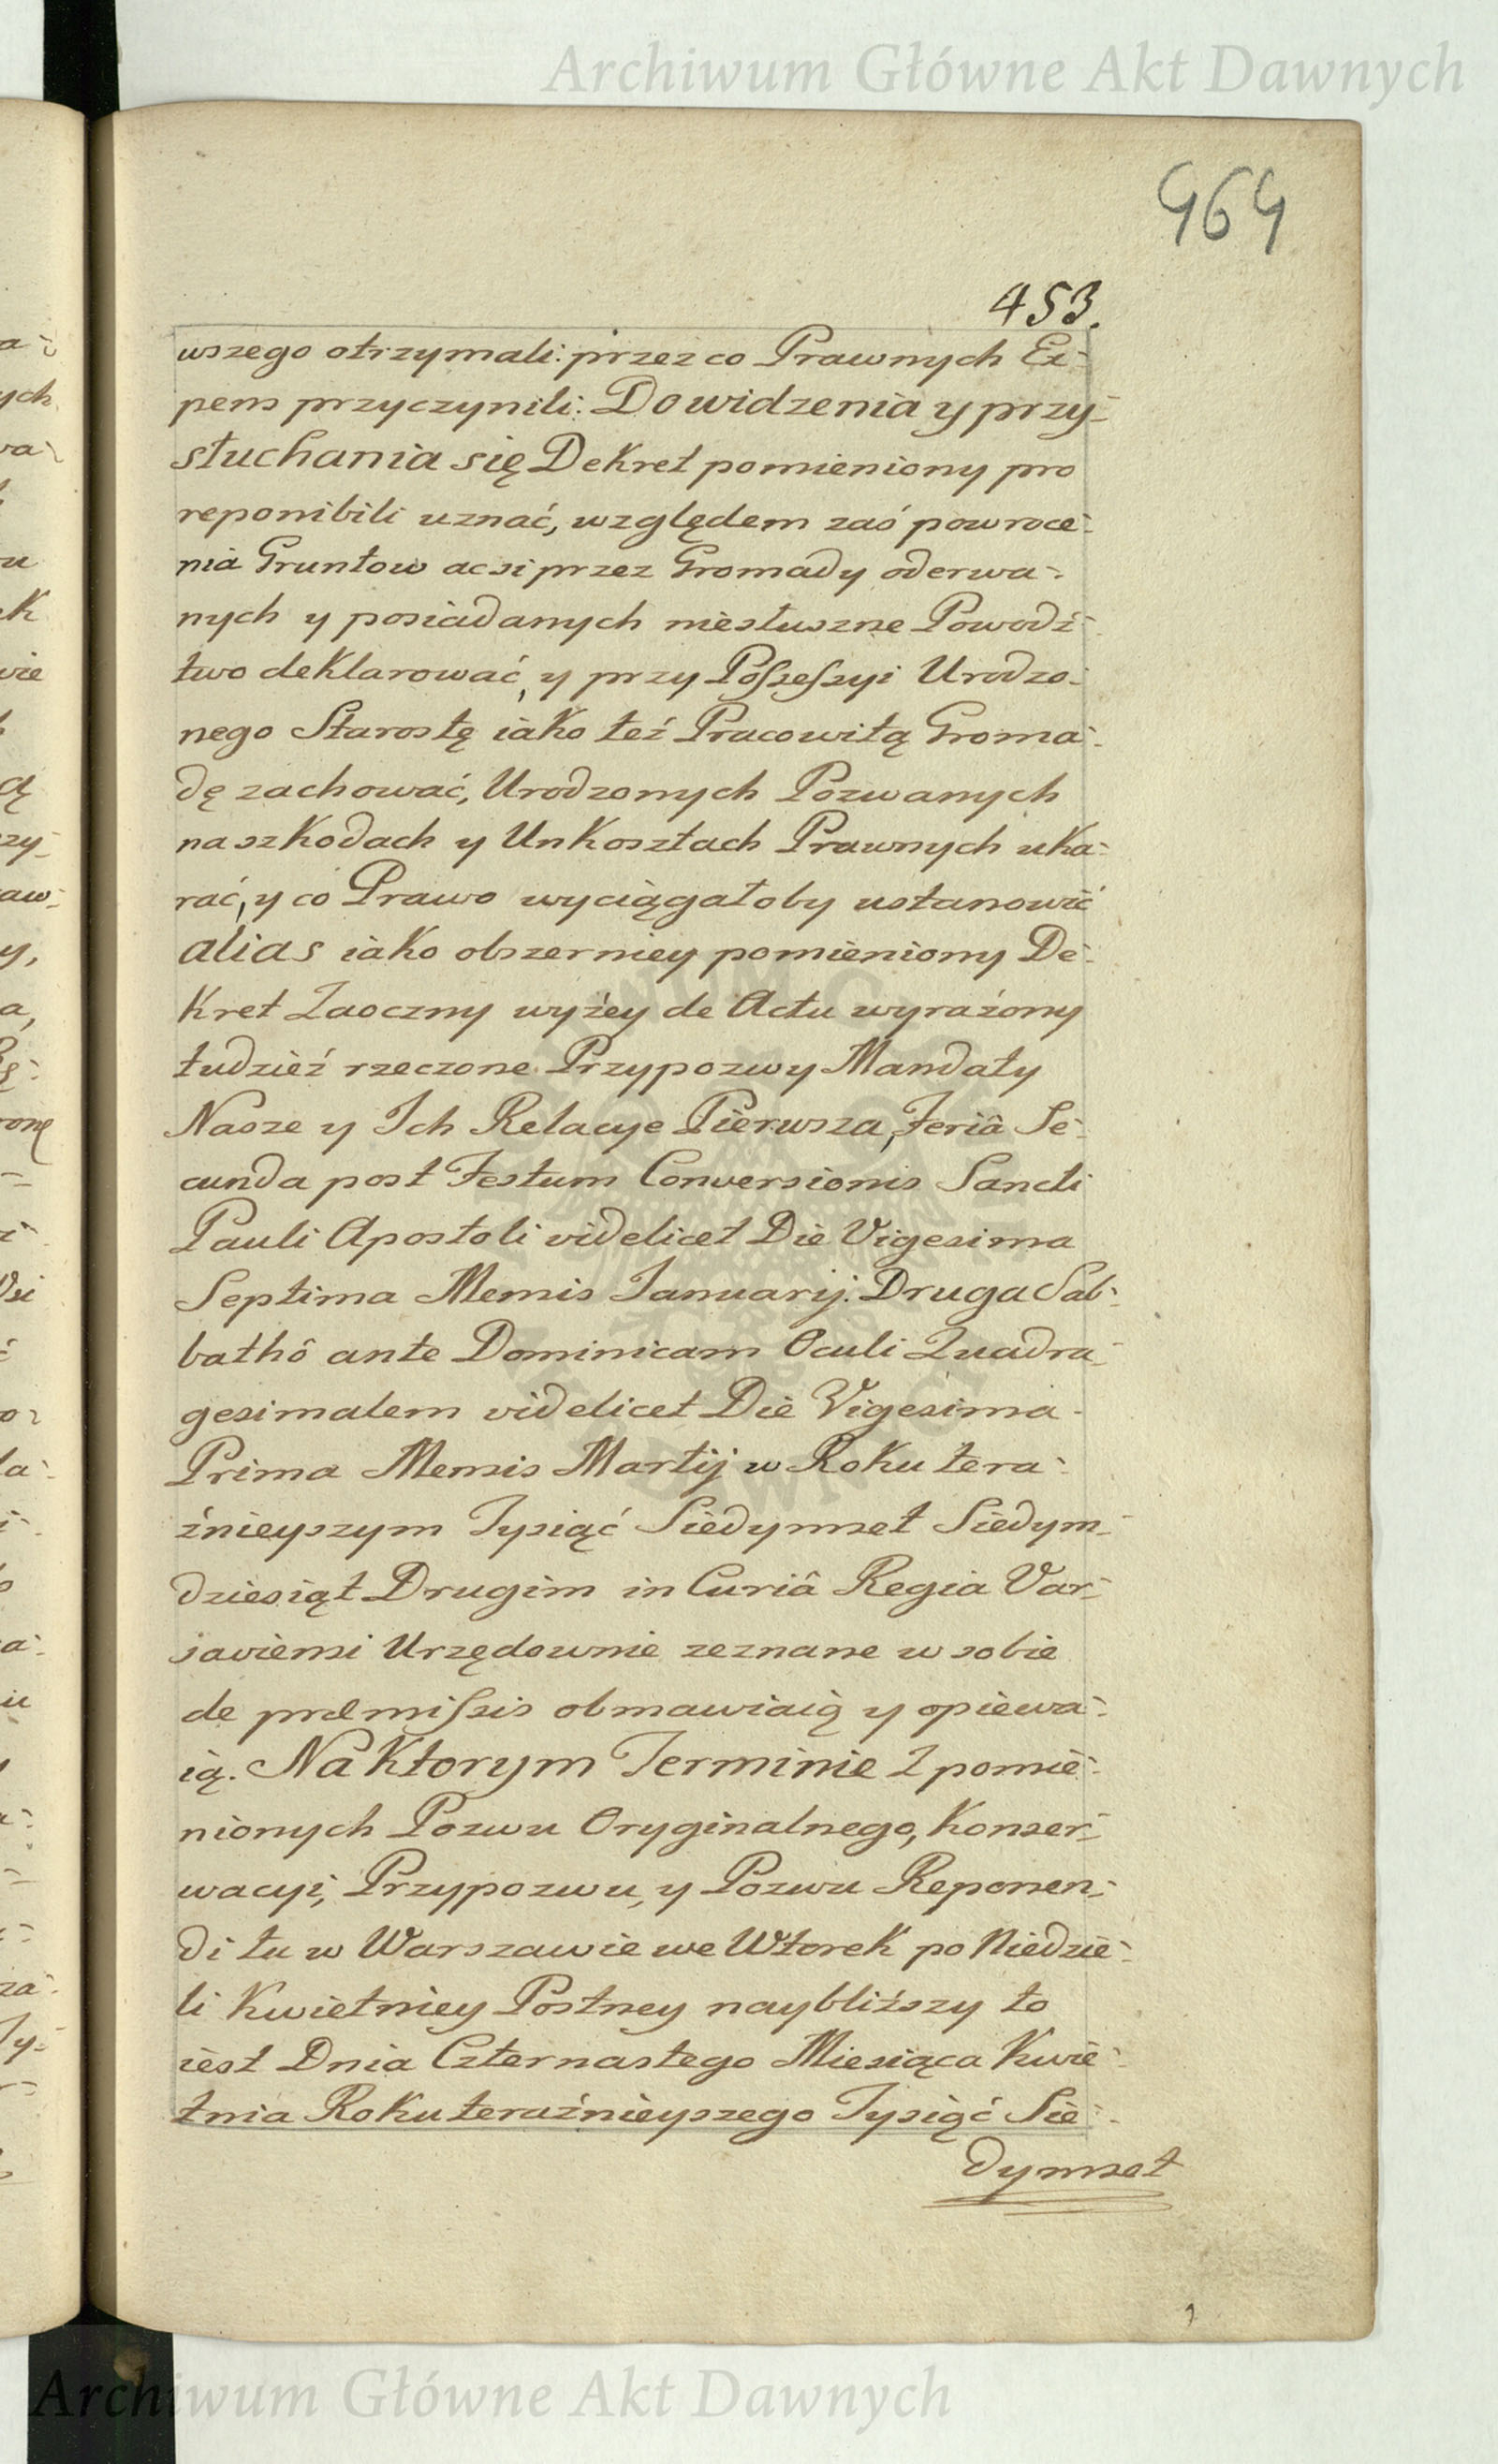 Archiwum Główne Akt Dawnych
464
453.
wszego otrzymali: przez co Prawnych Ex-
pens przyczynili: Do widzenia y przy-
słuchania się Dekret pomieniony pro
reponibili uznać, względem zaś powroce-
nia Gruntow acsi przez Gromady oderwa-
nych y posiadanych niesłuszne Powodź-
two deklarować, y przy Possessyi Urodzo-
nego Starostę iako też Pracowitą Groma-
dę zachować, Urodzonych Pozwanych
na szkodach y Unkosztach Prawnych uka-
rać, y co Prawo wyciągałoby ustanowić
alias iako obszerniey pomieniony De-
kret Zaoczny wyżey de Actu wyrażony
tudzież rzeczone Przypozwy Mandaty
Nasze y Ich Relacye Pierwsza, Feriâ Se-
cunda post Festum Conversionis Sancti
Pauli Apostoli videlicet Die Vigesima
Septima Mensis Januarij: Druga Sab-
bathô ante Dominicam Oculi Quadra-
gesimalem videlicet Die Vigesima-
Prima Mensis Martij w Roku tera-
źnieyszym Tysiąć Siedymset Siedym-
dziesiąt Drugim in Curiâ Regia Var-
saviensi Urzędownie zeznane w sobie
de præmissis obmawiaią y opiewa-
ią. Na Ktorym Terminie Z pomie-
nionych Pozwu Oryginalnego, Konser-
wacyi, Przypozwu, y Pozwu Reponen-
di tu w Warszawie we Wtorek po Niedzie-
li Kwietniey Postney naybliższy to
iest Dnia Czternastego Miesiąca Kwie-
tnia Roku teraźnieyszego Tysiąć Sie-
dymset
Archiwum Główne Akt Dawnych